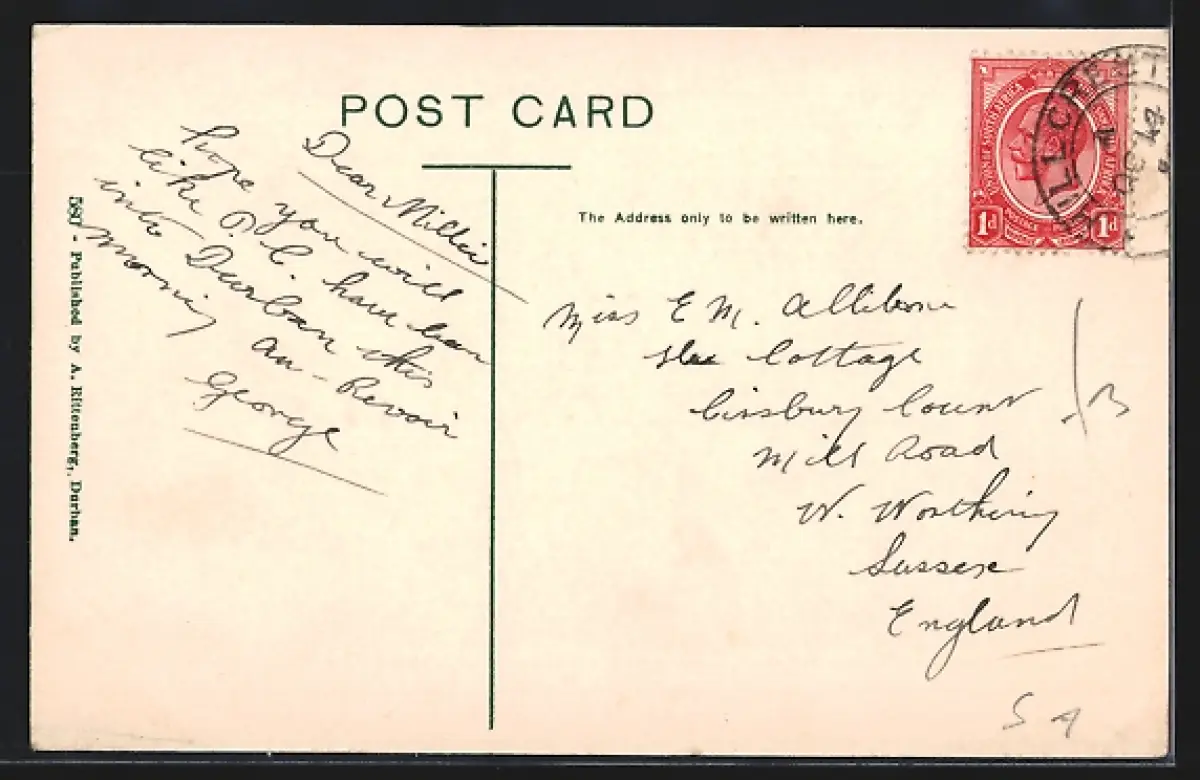 POST CARD
Dear Millie
hope you will
like P.C. have been
into Durban this
morning
au-Revoir
George
580 - Published by A. Rittenberg,, Durban.
The Address only to be written here.
Miss E M. Allibone
Cottage
Cissbury Court
Mill Road
W. Worthing
Sussex
England
S A
1d 1d
HILLCREST